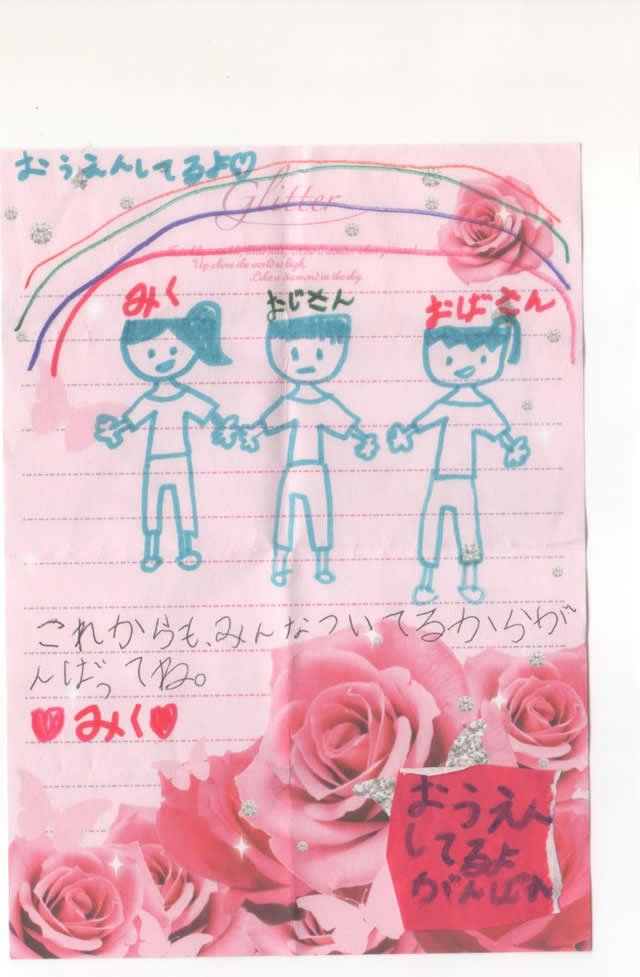 おうえんしてるよ♡
Glitter
Up above the world so high,
Like a diamond in the sky.
みく おじさん おばさん
これからも、みんなついてるからが
んばってね。
♥みく♥
おうえん
してるよ
がんばれ